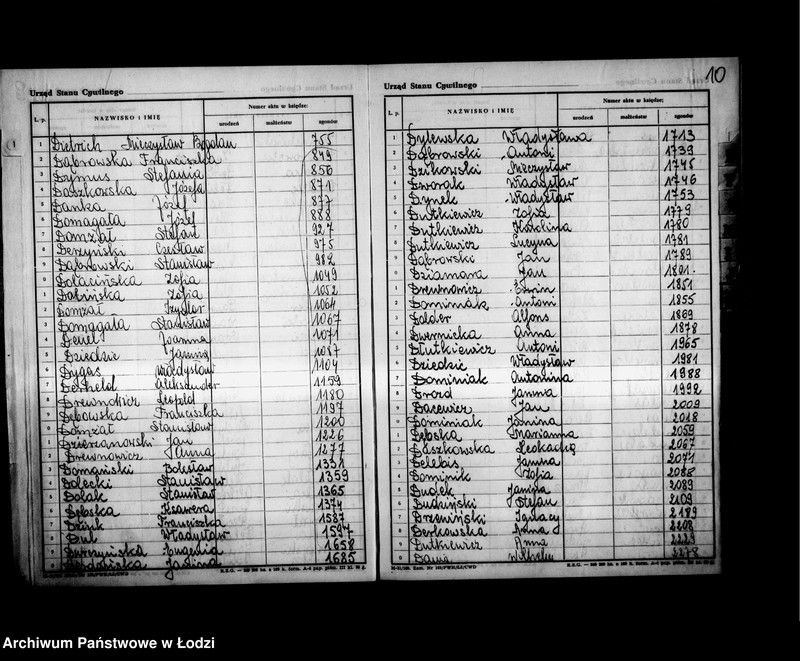 10
Urząd Stanu Cywilnego
L. p. NAZWISKO i IMIĘ Numer aktu w księdze:
urodzeń małżeństw zgonów
1 Dietrich Mieczysław Bogdan 755
2 Dąbrowska Franciszka 849
3 Dymus Stefania 856
4 Daszkowska Józefa 871
5 Danka Józef 877
6 Domagała Józef 888
7 Domżał Stefan 927
8 Deczyński Czesław 975
9 Dąbrowski Stanisław 982
0 Zofia 1049
1 Dolińska Zofia 1052
2 Domżał Izydor 1064
3 Domagała Stanisław 1067
4 Joanna 1071
5 Dziedzic Janina 1087
6 Dygas Władysław 1104
7 Berthold Aleksander 1159
8 Drewnowicz Leopold 1180
9 Dębowska Franciszka 1197
0 Domżał Stanisław 1200
1 Dzierżanowski Jan 1226
2 Drewnowicz Anna 1277
3 Domański Bolesław 1331
4 Dolecki Stanisław 1359
5 Dolak Stanisław 1365
6 Dębska Ksawera 1374
7 Franciszka 1587
8 Dul Władysław 1597
9 Eugenia 1658
0 Janina 1685
Urząd Stanu Cywilnego
L. p. NAZWISKO i IMIĘ Numer aktu w księdze:
urodzeń małżeństw zgonów
1 Dylewska Władysława 1713
2 Dąbrowski Antoni 1739
3 Dzikowski Mieczysław 1745
4 Dworak Władysław 1746
5 Dynek Władysław 1753
6 Dutkiewicz Zofia 1779
7 Dutkiewicz Karolina 1780
8 Dutkiewicz Lucyna 1781
9 Dąbrowski Jan 1789
0 Dziamara Jan 1801
1 Drewnowicz 1851
2 Dominiak Antoni 1855
3 Dolder Alfons 1869
4 Dwernicka Anna 1878
5 Dłutkiewicz Antoni 1965
6 Dziedzic Władysław 1981
7 Dominiak Antonina 1988
8 Drozd Janina 1992
9 Dacewicz Jan 2009
0 Dominiak Janina 2018
1 Dębska Marianna 2059
2 Daszkowska Leokadia 2067
3 Delebis Janina 2071
4 Dominik Zofia 2088
5 Dudek Janina 2089
6 Dudziński Stefan 2109
7 Drzewiński Ignacy 2189
8 Derkowska Anna 2208
9 Dutkiewicz Anna 2229
0 2278
Archiwum Państwowe w Łodzi